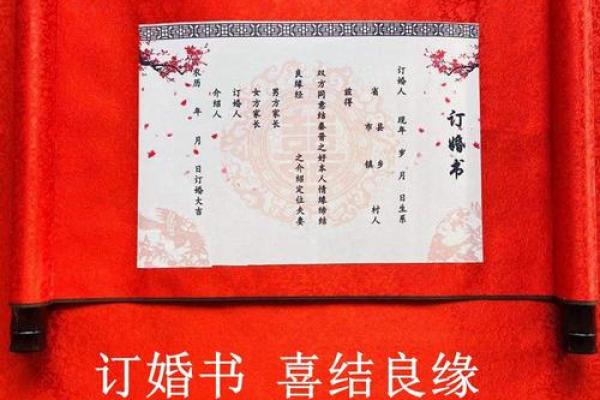 订婚书
订婚人 现年 岁 月 日生系
省 县 乡 村人
市 镇
兹得
双方同意结秦晋之好本人情缘缔结
良缘经 之介绍定位夫妻
男方家长
女方家长
订婚人
介绍人
农历 年 月 日订婚大吉
订婚书 喜结良缘